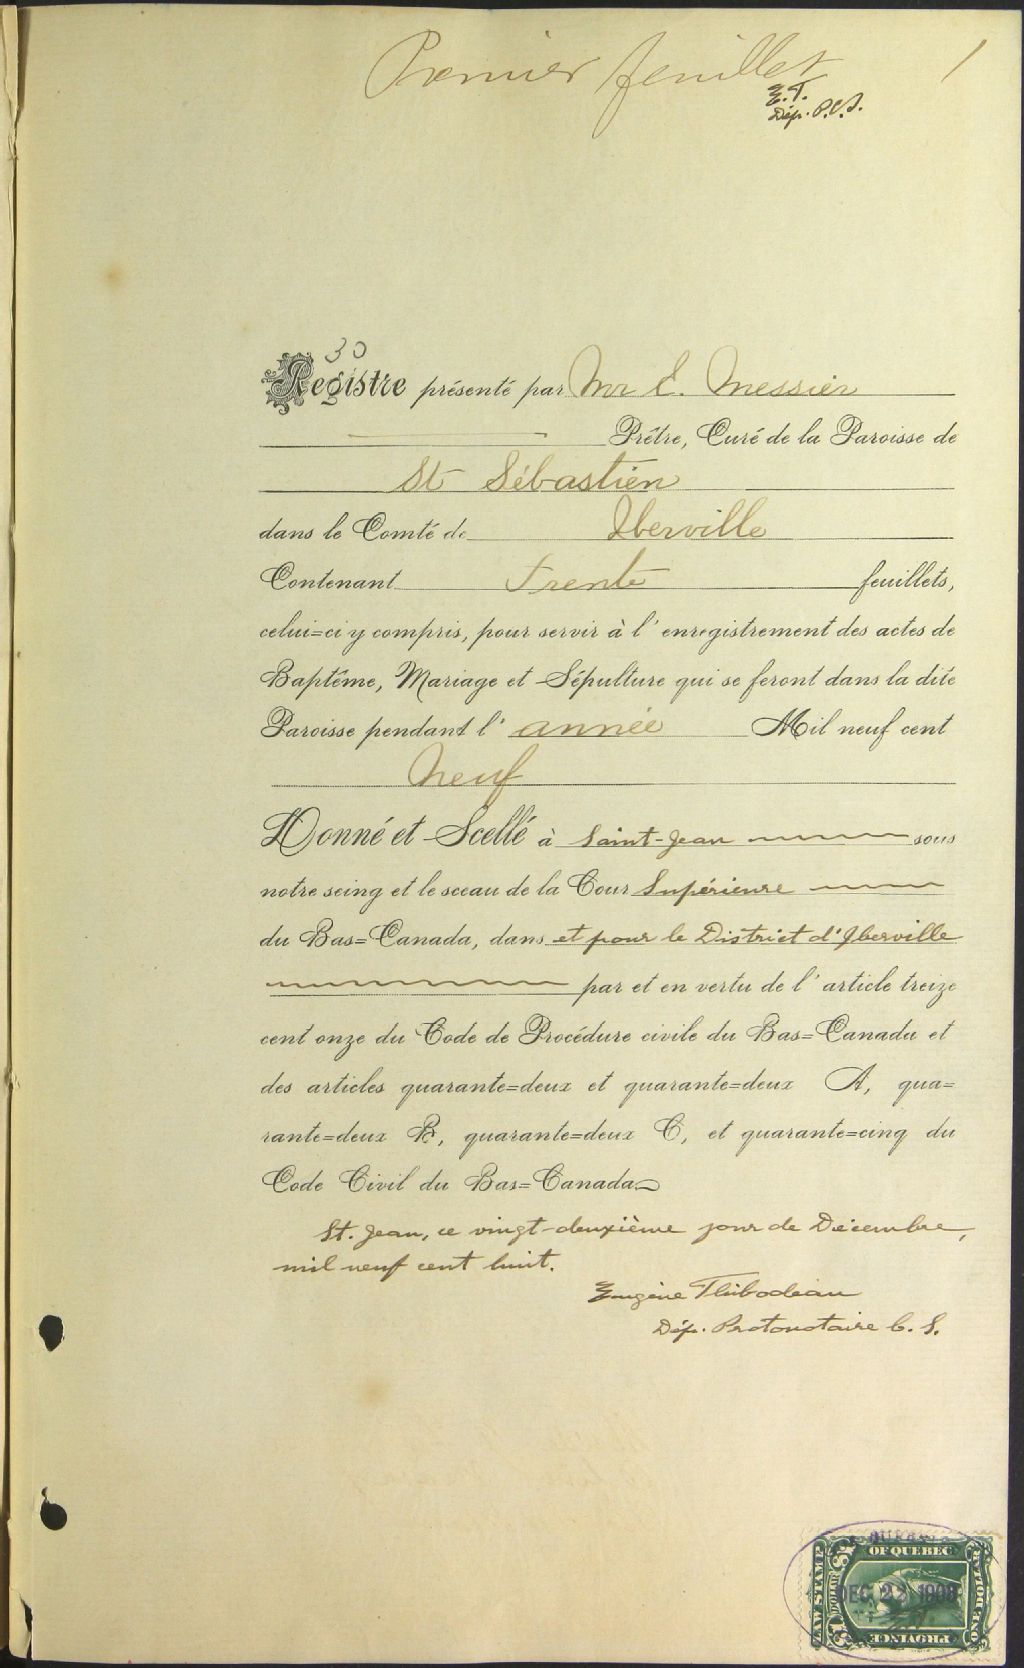 Premier feuillet 1
E. T.
Dép. P.C.S.
30
Registre présenté par Mr E. Messier
Prêtre, Curé de la Paroisse de
St Sébastien
dans le Comté de Iberville
Contenant Trente feuillets,
celui=ci y compris, pour servir à l'enregistrement des actes de
Baptême, Mariage et Sépulture qui se feront dans la dite
Paroisse pendant l'année Mil neuf cent
Neuf
Donné et Scellé à Saint-Jean sous
notre seing et le sceau de la Cour Supérieure
du Bas=Canada, dans et pour le District d'Iberville
par et en vertu de l'article treize
cent onze du Code de Procédure civile du Bas=Canada et
des articles quarante=deux et quarante=deux A, qua=
rante=deux B, quarante=deux C, et quarante=cinq du
Code Civil du Bas=Canada
St. Jean, ce vingt-deuxième jour de Décembre,
mil neuf cent huit.
Eugène Thibodeau
Dép. Protonotaire C. S.
OF QUEBEC
LAW STAMP
$1 DOLLAR $1
DEC 22 1908
ONE DOLLAR
PROVINCE